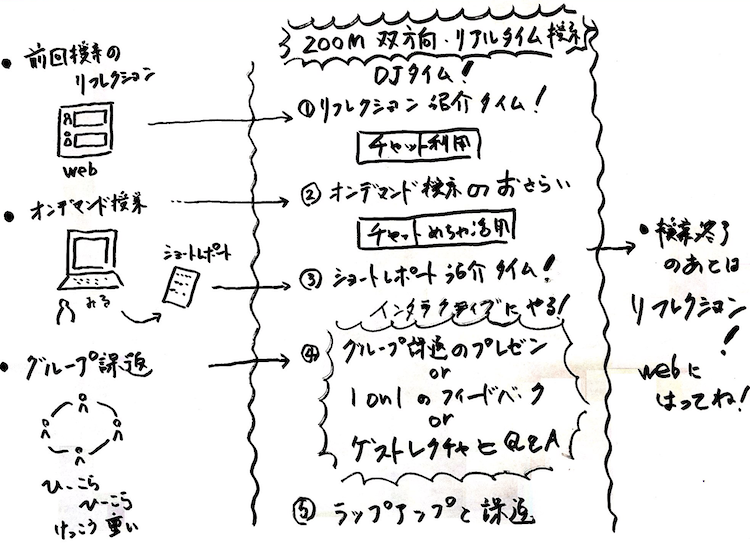 • 前回授業の
リフレクション
web
• オンデマンド授業
みる
ショートレポート
• グループ課題
ひーこら
ひーこら
けっこう重い
ZOOM 双方向・リアルタイム授業
DJタイム!
① リフレクション紹介タイム!
チャット利用
② オンデマンド授業のおさらい
チャットめちゃ活用
③ ショートレポート紹介タイム!
インタラクティブにやる!
④ グループ課題のプレゼン
or
1on1のフィードバック
or
ゲストレクチャとQ&A
⑤ ラップアップと課題
• 授業終了
のあとは
リフレクション
!
webに
はってね!